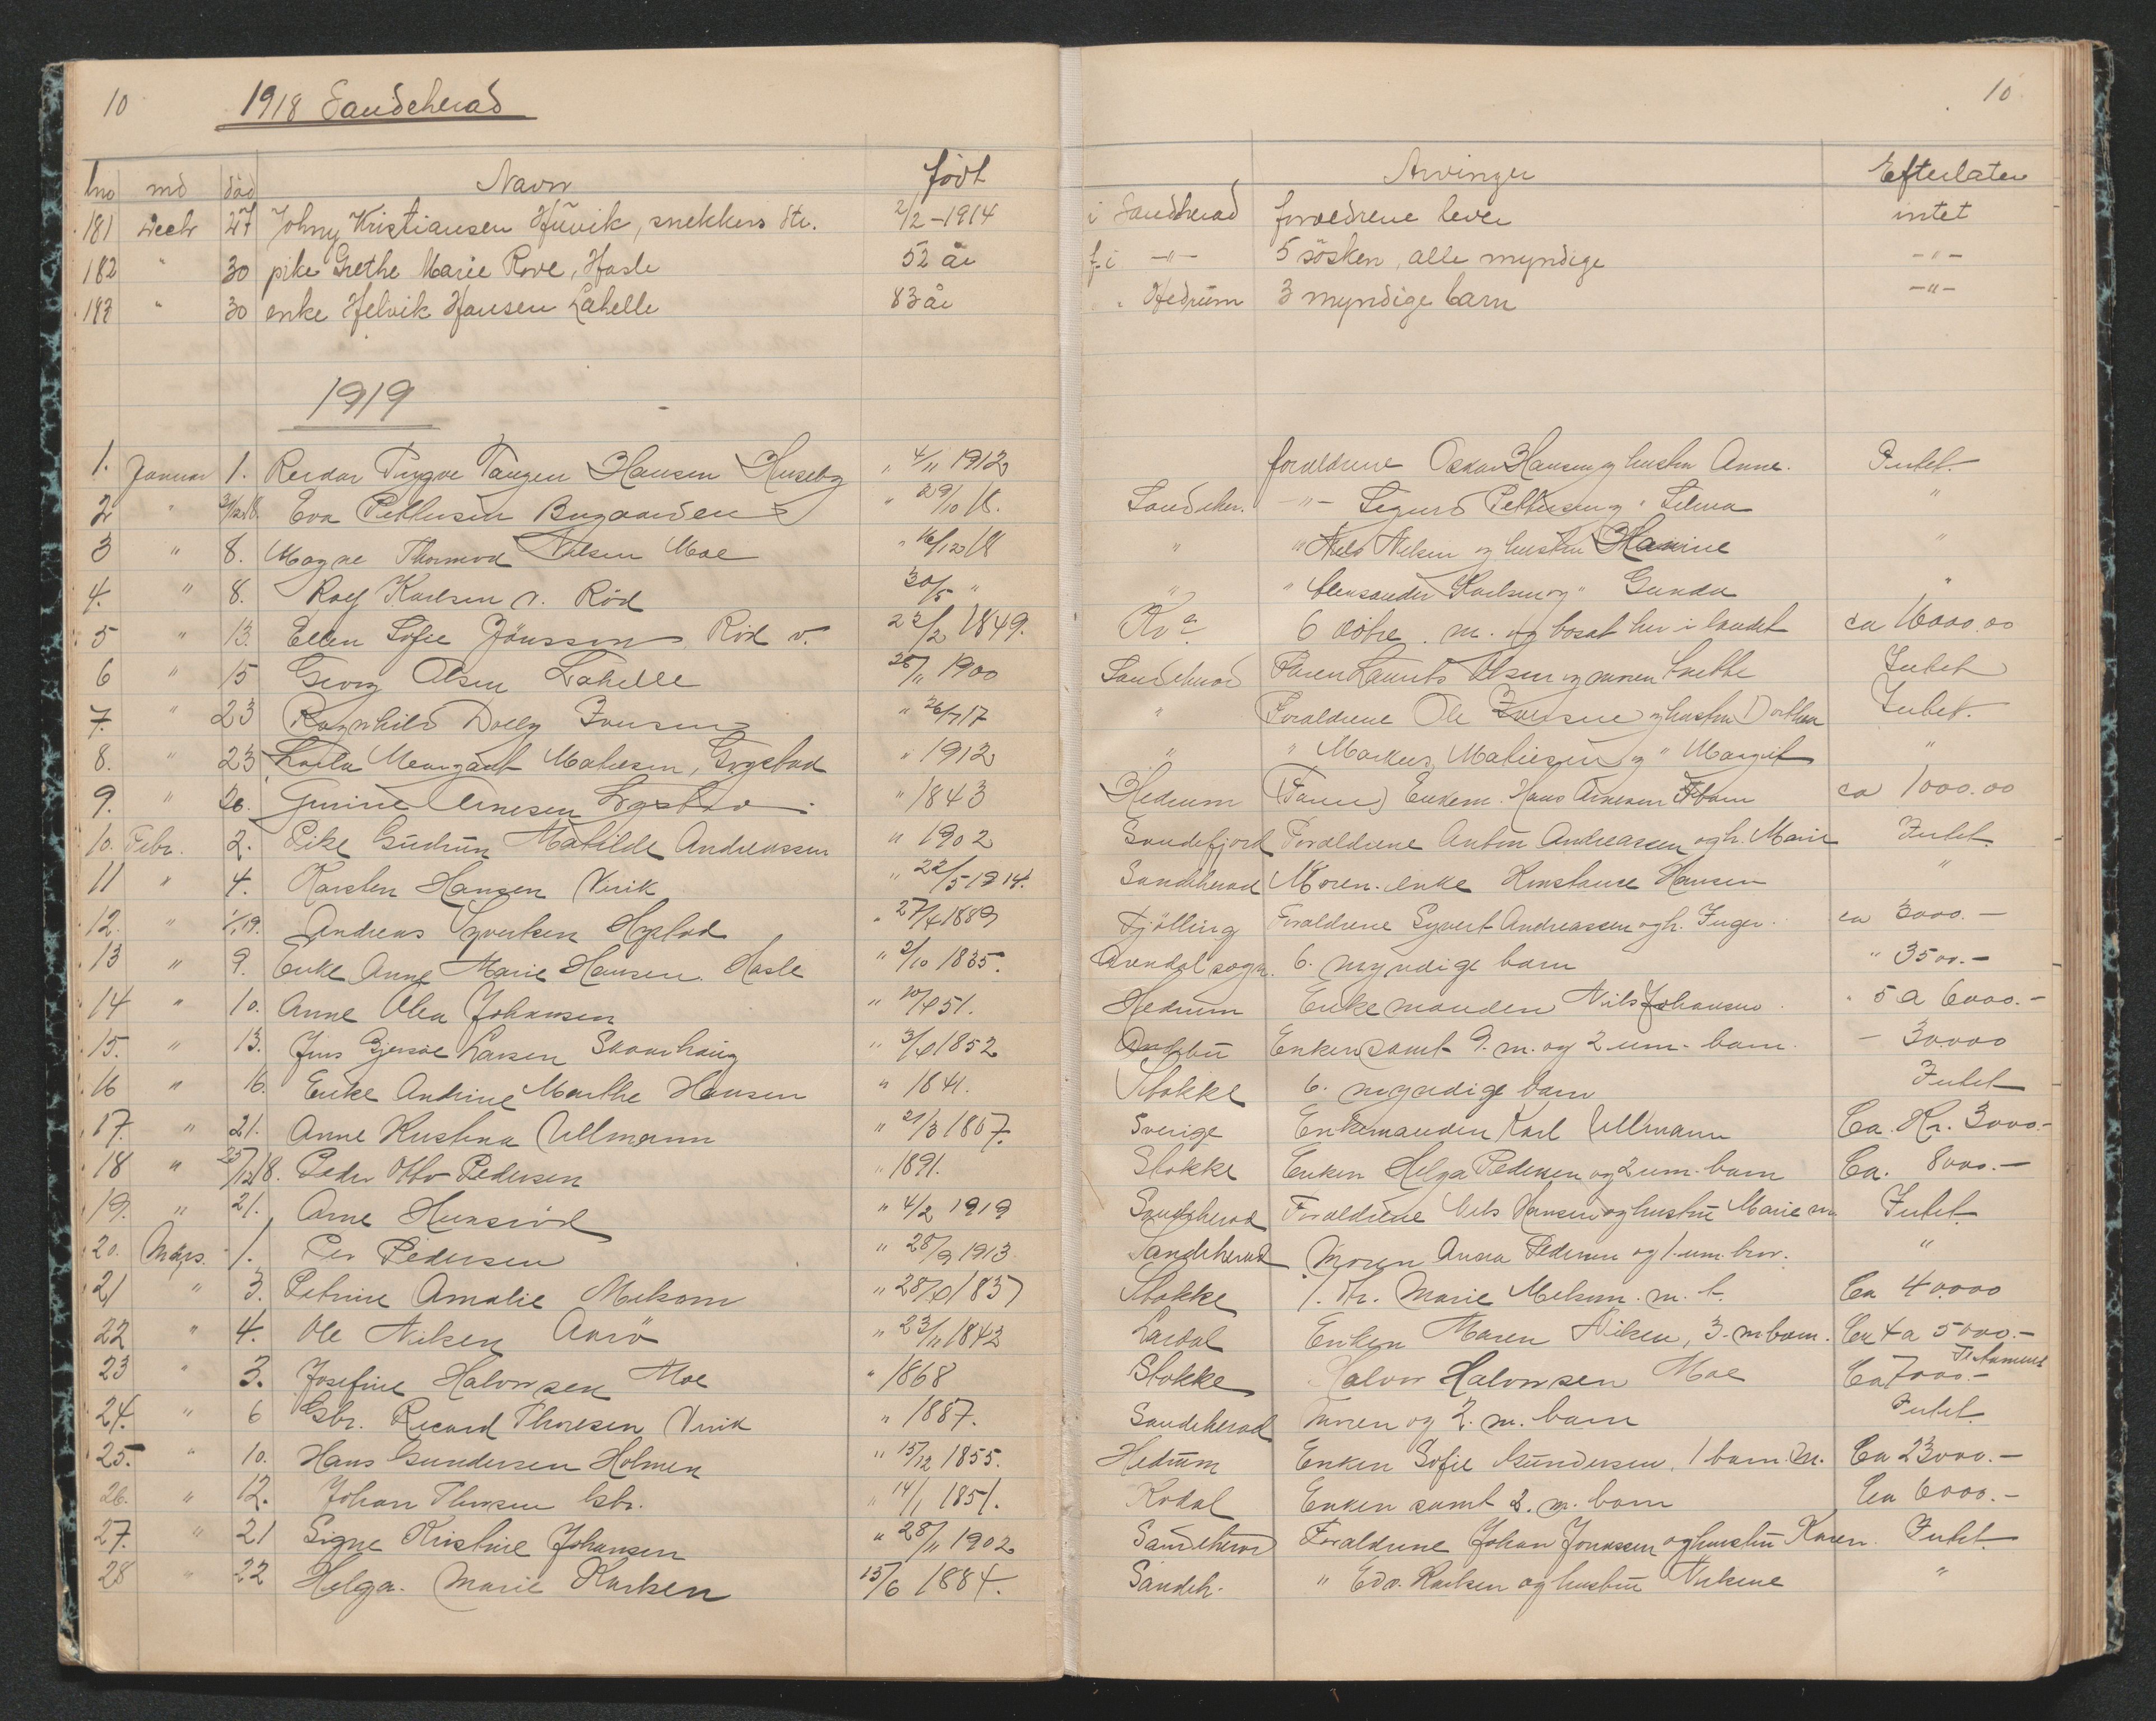 10 1918 Sandeherad 10
lno md död Navn født Arvinger Efterlater
181 Decbr 27 Johny Kristiansen Huvik, snekkers dtr. 2/2-1914 i Sandherad foreldrene lever intet
182 " 30 pike Grethe Marie Rove, Hasle 52 år f. i -"- 5 søsken, alle myndige -"-
183 " 30 enke Helvik Hansen Lahelle 83 år " Hedrum 3 myndige barn -"-
1919
1. Januar 1. Reidar Trygve Tangen Hansen Huseby " 4/11 1912 forældrene Oskar Hansen og hustru Anne. Intet.
2 " 31/12 18. Eva Pettersen Bugaarden " 29/10 18. Sandeher. -"- Sigurd Pettersen og " Selma "
3 " 8. Magne Thormod Nilsen Moe " 16/12 18 " " Nils Nilsen og hustru Hanine "
4. " 8. Rolf Karlsen v. Rød 30/5 " " " Aleksander Karlsen og " Gunda "
5 " 13. Ellen Sofie Jönsson Rød v. 22/2 1849. 6 døtre. m. og bosat her i landet ca 16000.00
6 " 15 Georg Olsen Lahelle 25/11 1900 Sandeherad Faren Laurits Olsen og moren Intet
7. " 23 Ragnhild Dolly Iversen " 26/7 17 " Forældrene Ole Iversen og hustru Dorthea Intet.
8. " 23 Karla Margart Matiesen, Gogstad " 1912 " " Markus Matiesen og " Margit "
9. " 26. Gurine Arnesen " 1843 Hedrum (Faren) Enkem. Hans Arnesen 7 barn ca 1000.00
10. Febr. 2. Pike Gudrun Matilde Andreassen " 1902 Sandefjord Forældrene Anton Andreassen og h. Marie Intet.
11 " 4. Karsten Hansen Virik " 22/5 1914. Sandeherad Moren. enke Konstance Hansen "
12. " 1/1 19. Andreas Syvertsen " 27/4 1889 Tjölling Forældrene Syvert Andreassen og h. Inger. ca 3000.-
13 " 9. Enke Anne Marie Hansen. Hasle " 2/10 1835. Arendal sogn. 6. myndige barn " 3500.-
14 " 10. Anne Olea Johansen " 10/4 51. Hedrum Enkemanden Nils Johansen " 5 a 6000.-
15. " 13. Jens Gjersøe Larsen Skaarhaug " 3/4 1852 Andebu Enken samt 9. m. og 2 um. barn. - 30000
16 " 16. Enke Andrine Marthe Hansen " 1841. Stokke 6. myndige barn Intet
17. " 21. Anne Kristina Ullmann " 21/3 1867. Sverige Enkemanden Karl Ullmann Ca. Kr. 3000.-
18 " 25/12 18. Peder Otto Pedersen " 1891. Stokke Enken Helga Pedersen og 2 um. barn Ca. 8000.-
19. " 21. Arne Hunsrød " 4/2 1919 Sandeherad Forældrene Nils Hansen og hustru Marie Intet.
20. Mars. 1. Per Pedersen " 28/9 1913. Sandeherad Moren Anna Pedersen og 1. um. bror. "
21 " 3. Petrine Amalie Melsom " 28/10 1837 Stokke 1. dtr. Marie Melsom. m. Ca 40000
22 " 4. Ole Nilsen Aarø " 23/11 1842 Lardal Enken Maren Nilsen, 3. m barn. Ca 4 a 5000.-
23 " 3. Josefine Halvorsen Moe " 1868 Stokke Halvor Halvorsen Moe Ca 7000.- Testament
24. " 6 Gbr. Ricard Thoresen Virik " 1887. Sandeherad Moren og 2. m. barn Intet.
25. " 10. Hans Gundersen Holmen " 15/12 1855. Hedrum Enken Sofie Gundersen. 1 barn. m. Ca 23000.-
26. " 12. Johan Thorsen Gbr. " 14/1 1851. Kodal Enken samt 2. m. barn Ca 6000.-
27. " 21 Signe Kristine Johansen " 28/11 1902 Sandeherad Forældrene Johan Jonassen og hustru Karen. Intet.
28 " 22 Helga. Marie Karlsen 15/6 1884. Sandeh. " Edv. Karlsen og hustru "